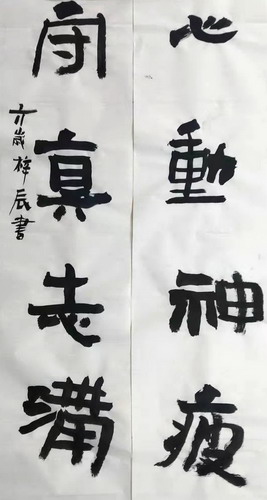 心動神疲
守真志滿
六歲梓辰書